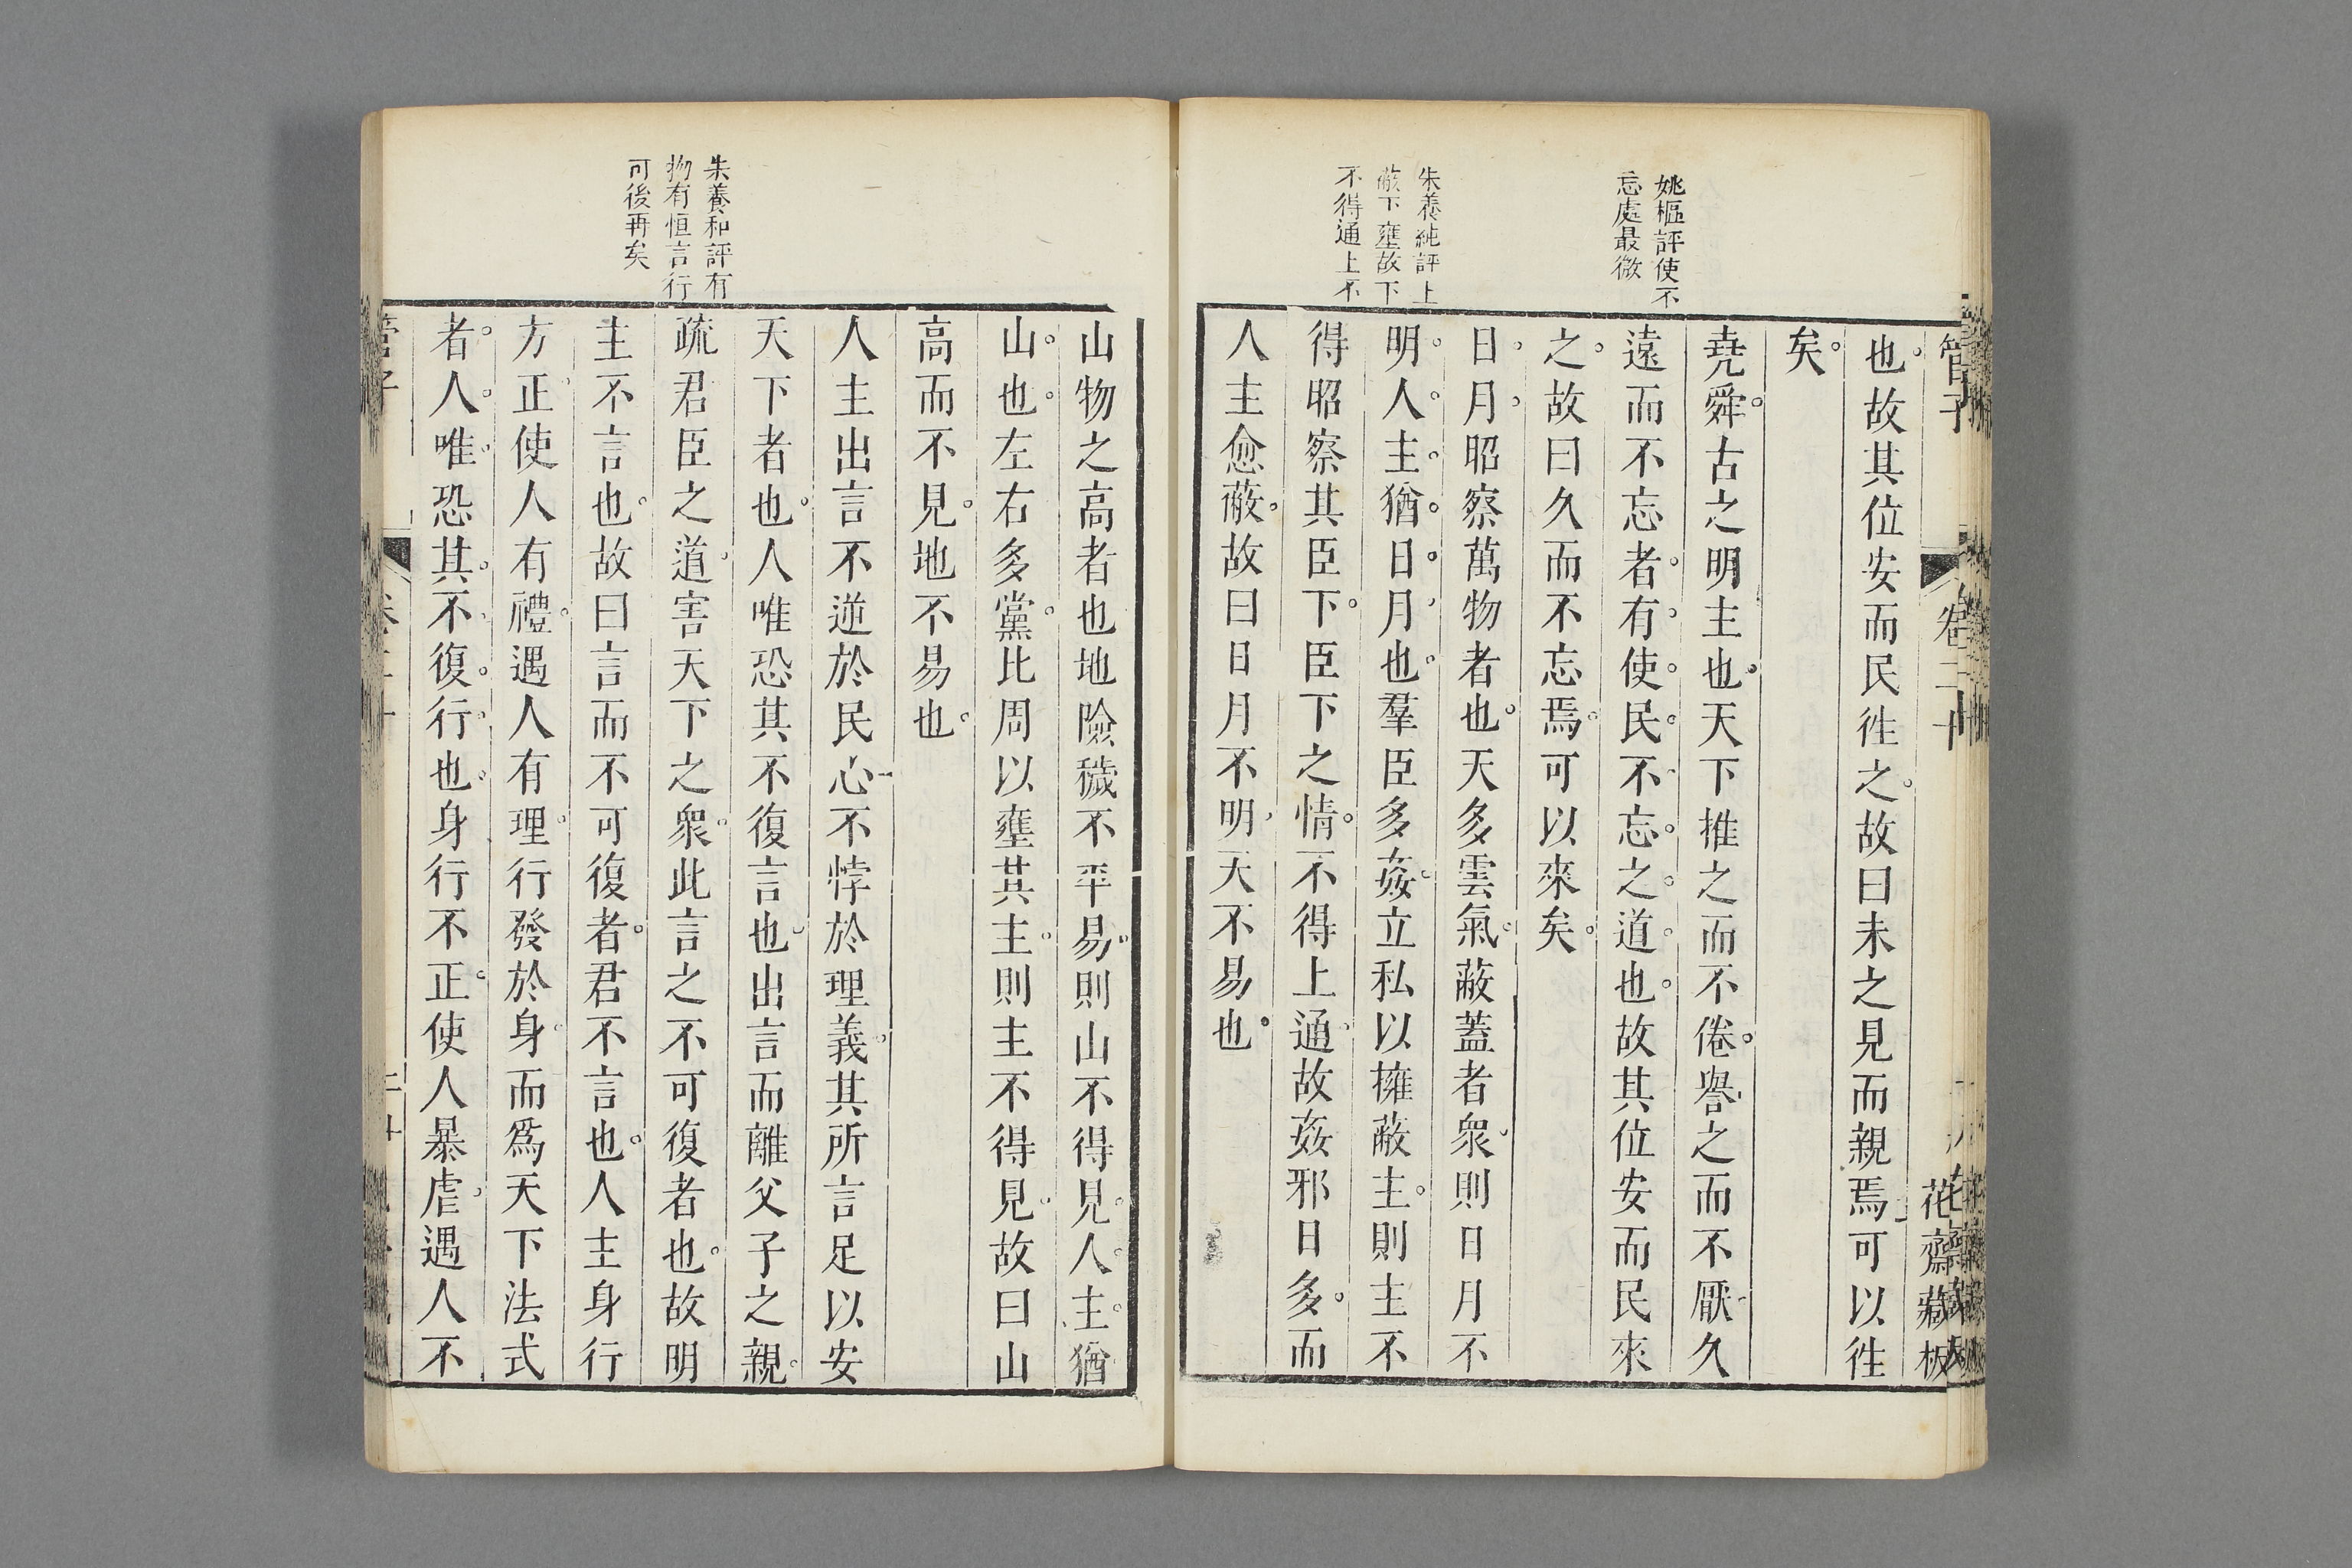 管子
卷二十
花齋藏板
姚樞評使不
忘處最微
朱養純評上
蔽下壅故下
不得通上不
也故其位安而民徃之故曰未之見而親焉可以徃
矣
堯舜古之明主也天下推之而不倦譽之而不厭久
遠而不忘者有使民不忘之道也故其位安而民來
之故曰久而不忘焉可以來矣
日月昭察萬物者也天多雲氣蔽蓋者衆則日月不
明人主猶日月也羣臣多姦立私以擁蔽主則主不
得昭察其臣下臣下之情不得上通故姦邪日多而
人主愈蔽故曰日月不明天不易也
朱養和評有
物有恒言行
可後再矣
山物之高者也地險穢不平易則山不得見人主猶
山也左右多黨比周以壅其主則主不得見故曰山
高而不見地不易也
人主出言不逆於民心不悖於理義其所言足以安
天下者也人唯恐其不復言也出言而離父子之親
疏君臣之道害天下之衆此言之不可復者也故明
主不言也故曰言而不可復者君不言也人主身行
方正使人有禮遇人有理行發於身而爲天下法式
者人唯恐其不復行也身行不正使人暴虐遇人不